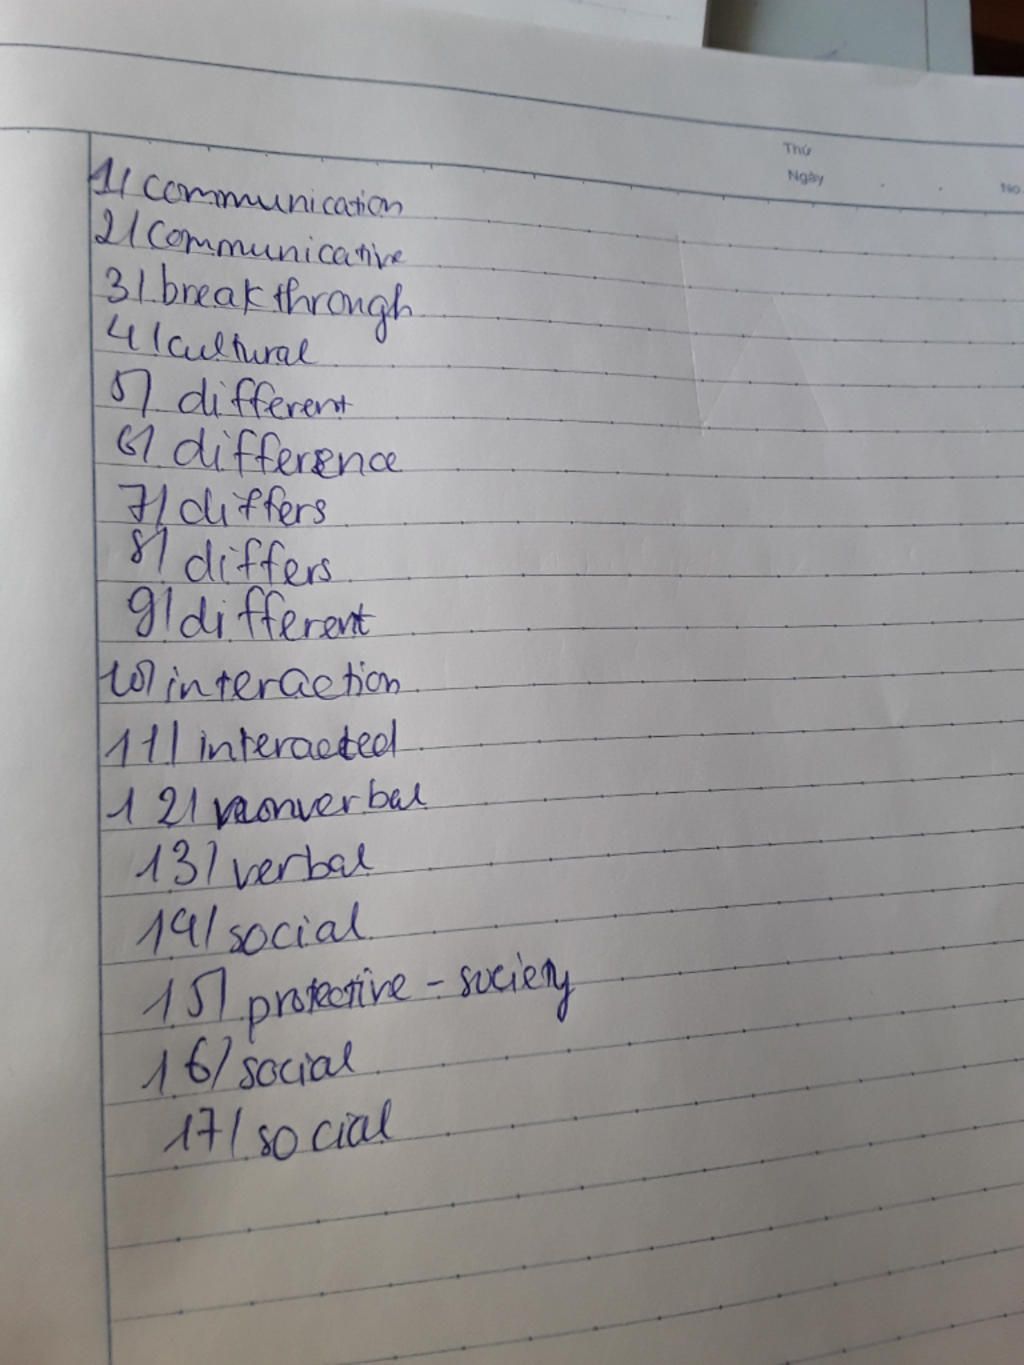 Thứ
Ngày
No.
1/ communication
2/ communicative
3/ breakthrough
4/ cultural
5/ different
6/ difference
7/ differs
8/ differs
9/ different
10/ interaction
11/ interacted
12/ nonverbal
13/ verbal
14/ social
15/ protective - society
16/ social
17/ social